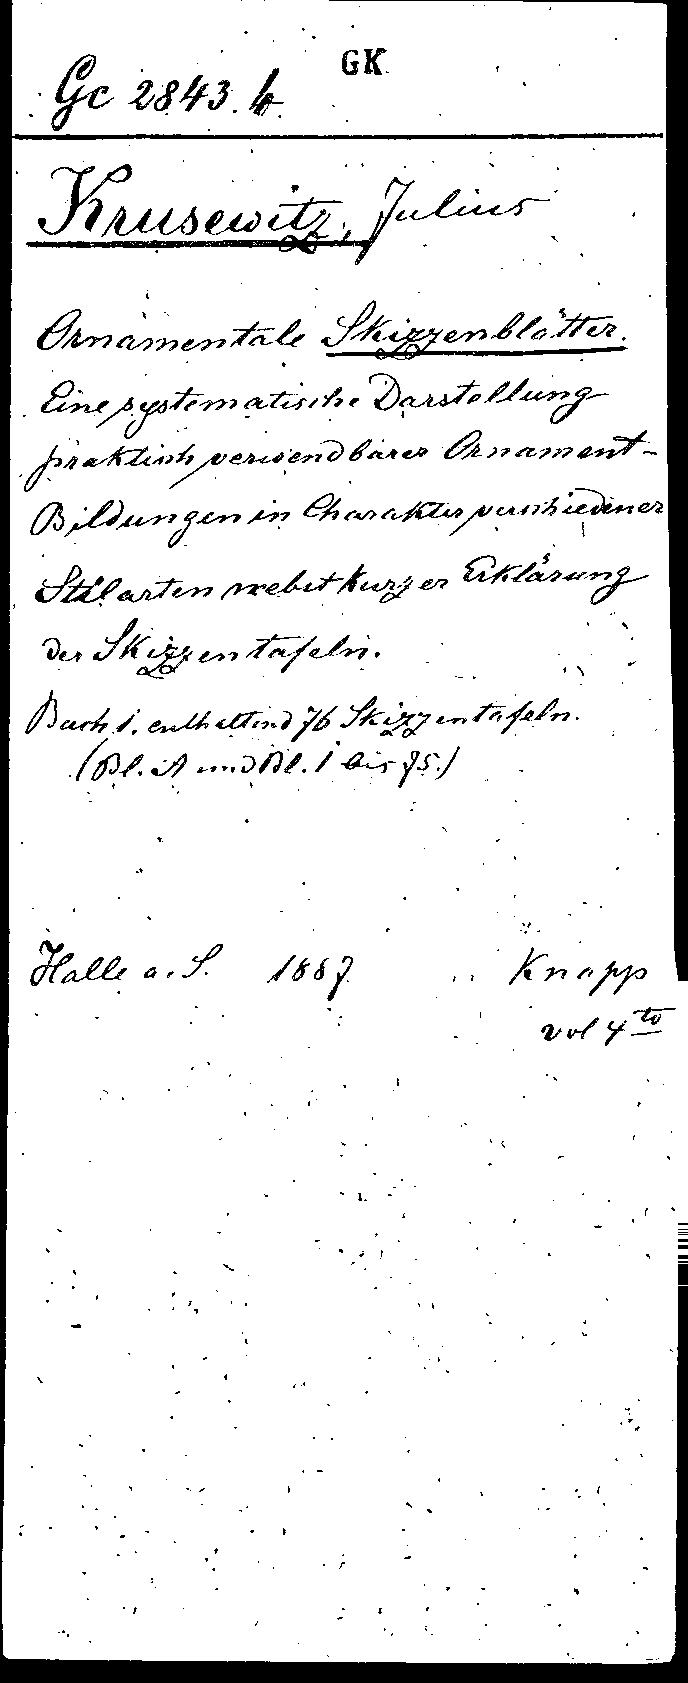 GK
Gc 2843. 4
Krusewitz, Julius
Ornamentale Skizzenblätter.
Eine systematische Darstellung
praktisch verwendbarer Ornament-
Bildungen in Charakter verschiedener
Stilarten nebst kurzer Erklärung
der Skizzentafeln.
Buch 1. enthaltend 76 Skizzentafeln.
(Bl. A und Bl. 1 bis 75.)
Halle a. S. 1887 Knapp
vol 4to